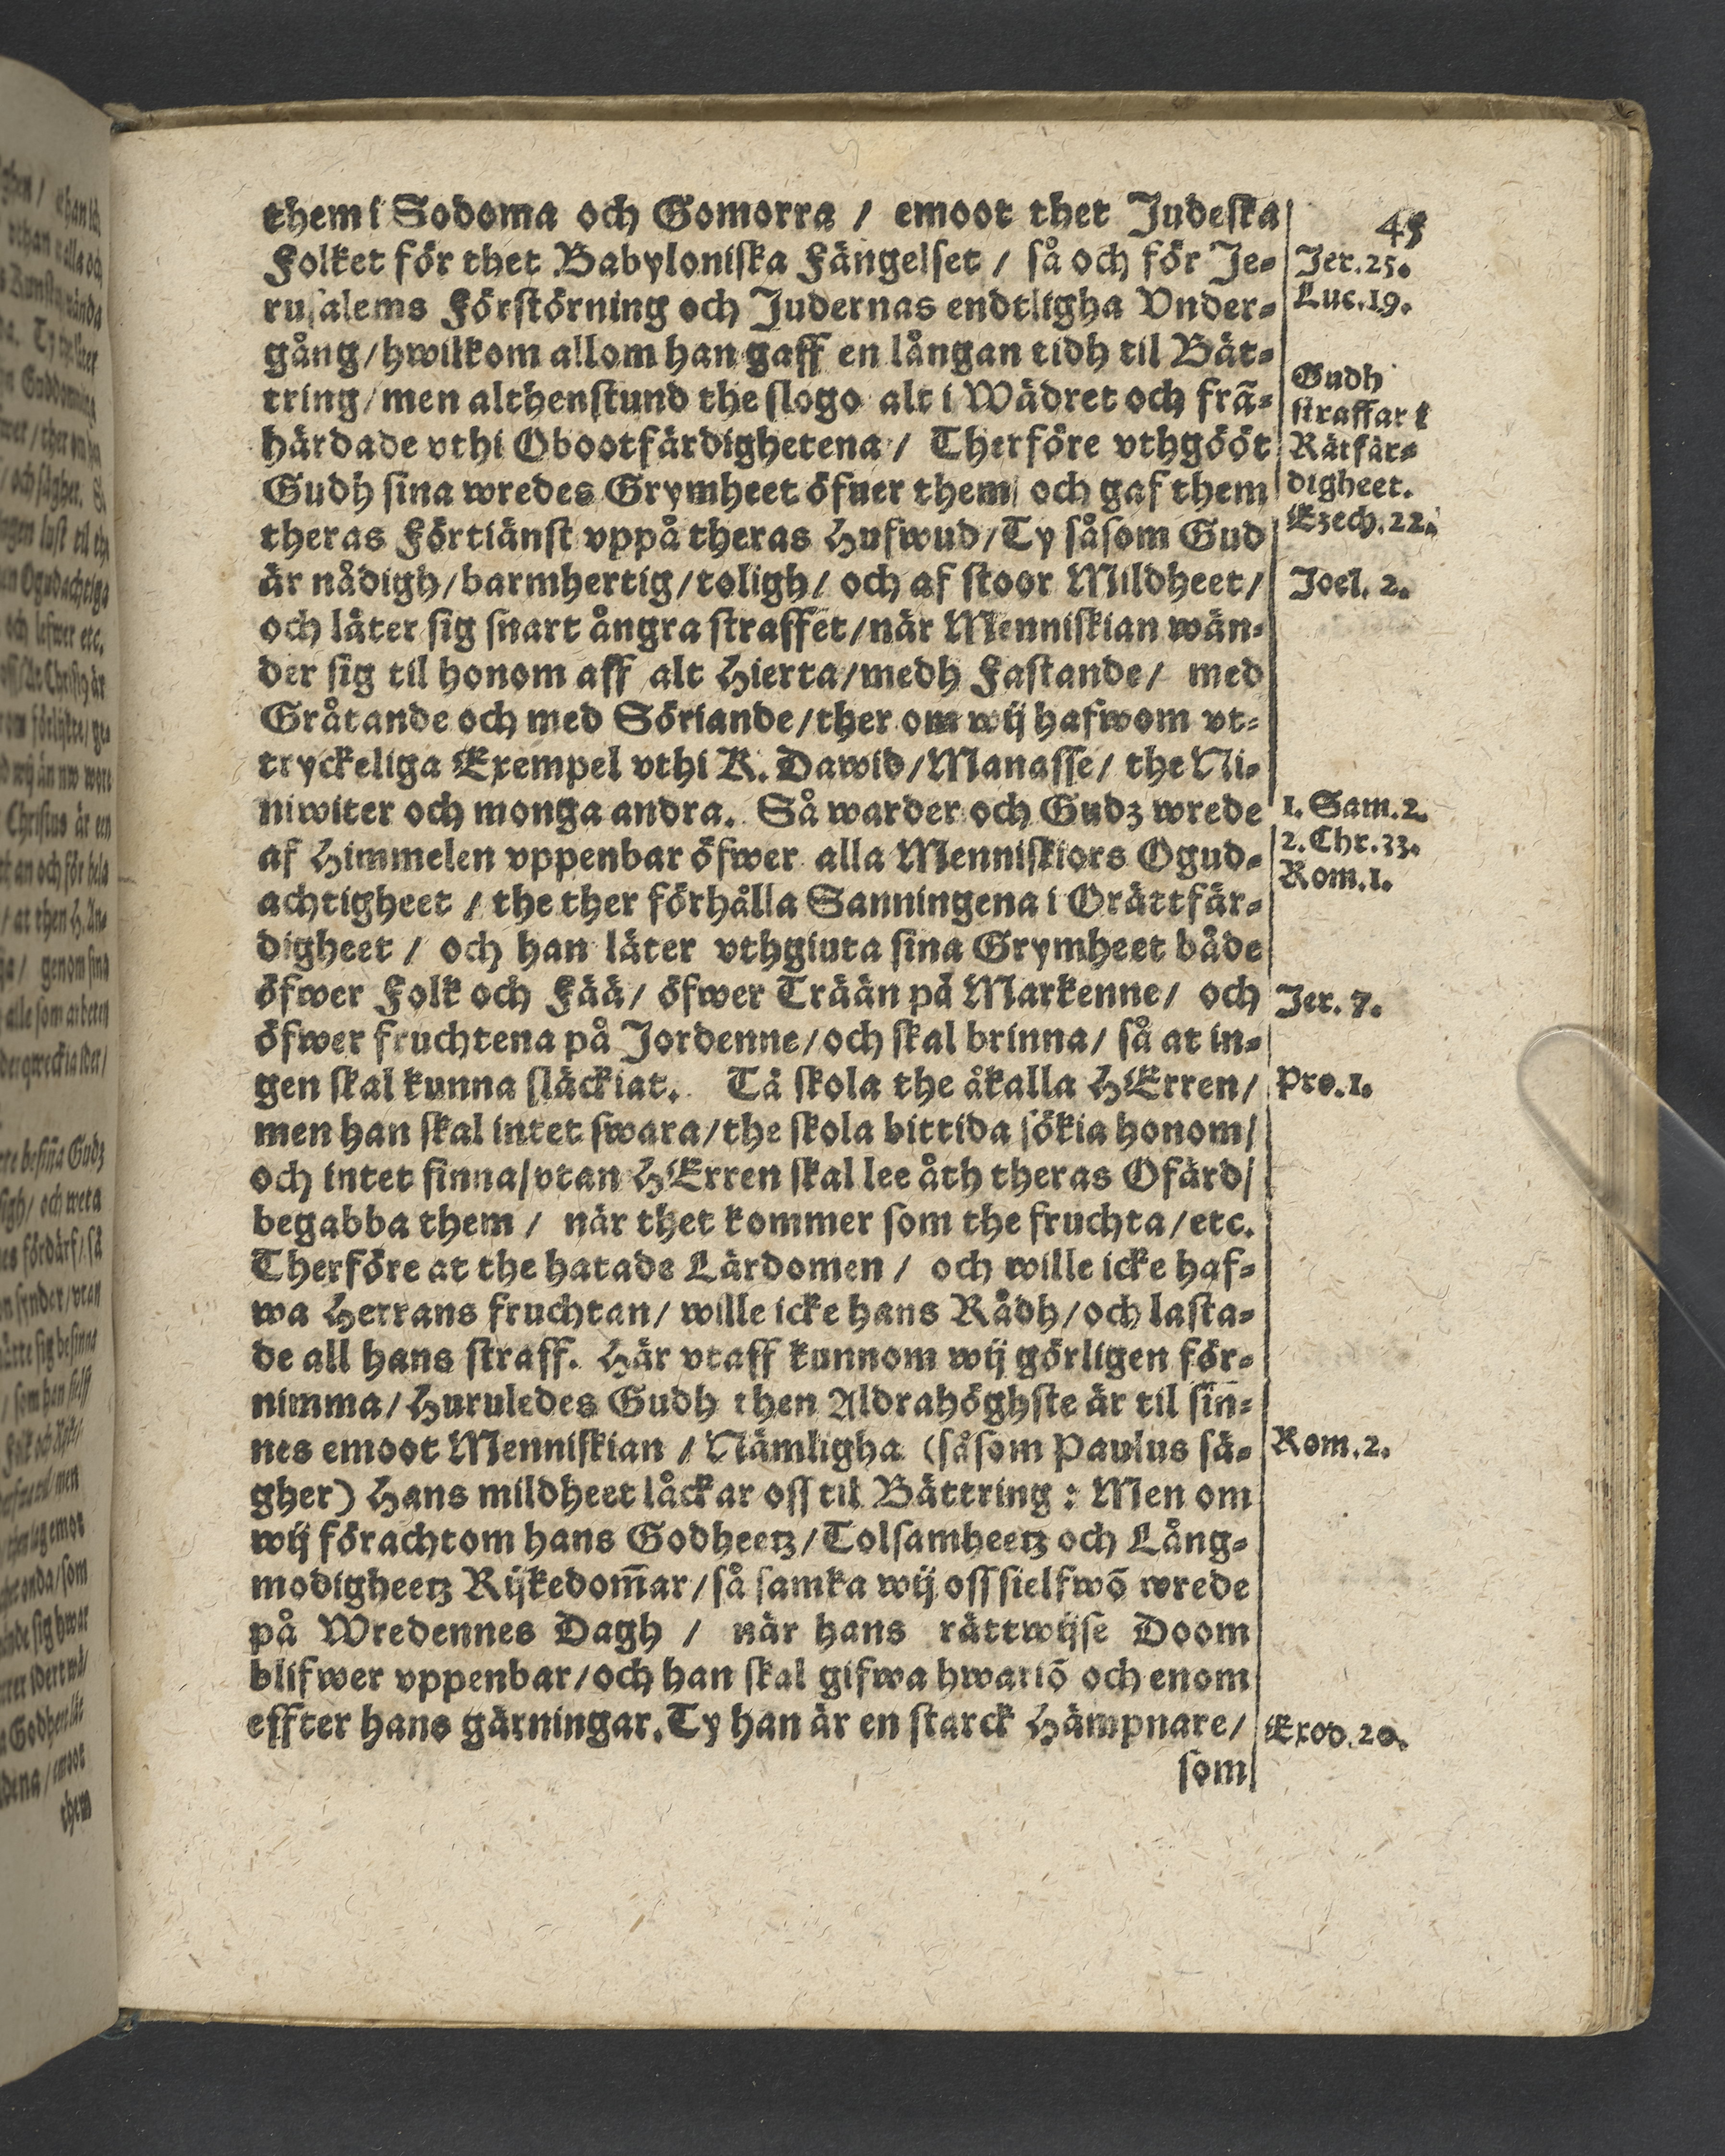 them i Sodoma och Gomorra / emoot thet Judeska
Folket för thet Babyloniska Fängelset / så och för Je-
rusalems Förstörning och Judernas endtligha Vnder-
gång/hwilkom allom han gaff en långan tidh til Bät-
tring/men althenstund the slogo alt i Wädret och frã-
härdade vthi Obootfärdighetena/ Therföre vthgööt
Gudh sina wredes Grymheet öfuer them/ och gaf them
theras Förtiänst vppå theras Hufwud/Ty såsom Gud
är nådigh/barmhertig/toligh/ och af stoor Mildheet/
och låter sig snart ångra straffet/när Menniskian wän-
der sig til honom aff alt Hierta/medh Fastande/ med
Gråtande och med Söriande/ther om wij hafwom vt-
tryckeliga Exempel vthi K. Dawid/Manasse/ the Ni-
niwiter och monga andra. Så warder och Gudz wrede
af Himmelen vppenbar öfwer alla Menniskiors Ogud-
achtigheet / the ther förhålla Sanningena i Orättfär-
digheet / och han låter vthgiuta sina Grymheet både
öfwer Folk och Fää/ öfwer Trään på Markenne/ och
öfwer fruchtena på Jordenne/och skal brinna/ så at in-
gen skal kunna släckiat. Tå skola the åkalla HErren/
men han skal intet swara/the skola bittida sökia honom/
och intet finna/vtan HErren skal lee åth theras Ofärd/
begabba them / när thet kommer som the fruchta/etc.
Therföre at the hatade Lärdomen / och wille icke haf-
wa Herrans fruchtan/ wille icke hans Rådh/och lasta-
de all hans straff. Här vtaff kunnom wij görligen för-
nimma/Huruledes Gudh then Aldrahöghste är til sin̄-
nes emoot Menniskian / Nämligha (såsom Paulus sä-
gher) Hans mildheet låckar oss til Bättring : Men om
wij förachtom hans Godheetz/Tolsamheetz och Lång-
modigheetz Rijkedom̄ar/så samka wij oss sielfwõ wrede
på Wredennes Dagh / när hans rättwijse Doom
blifwer vppenbar/och han skal gifwa hwariõ och enom
effter hans gärningar. Ty han är en starck Hämpnare/
som
45
Jer.25.
Luc.19.
Gudh
straffar i
Rätfär-
digheet.
Ezech.22.
Joel. 2.
1. Sam.2.
2. Chr.33.
Rom.1.
Jer. 7.
Pro.1.
Rom.2.
Exod.20.